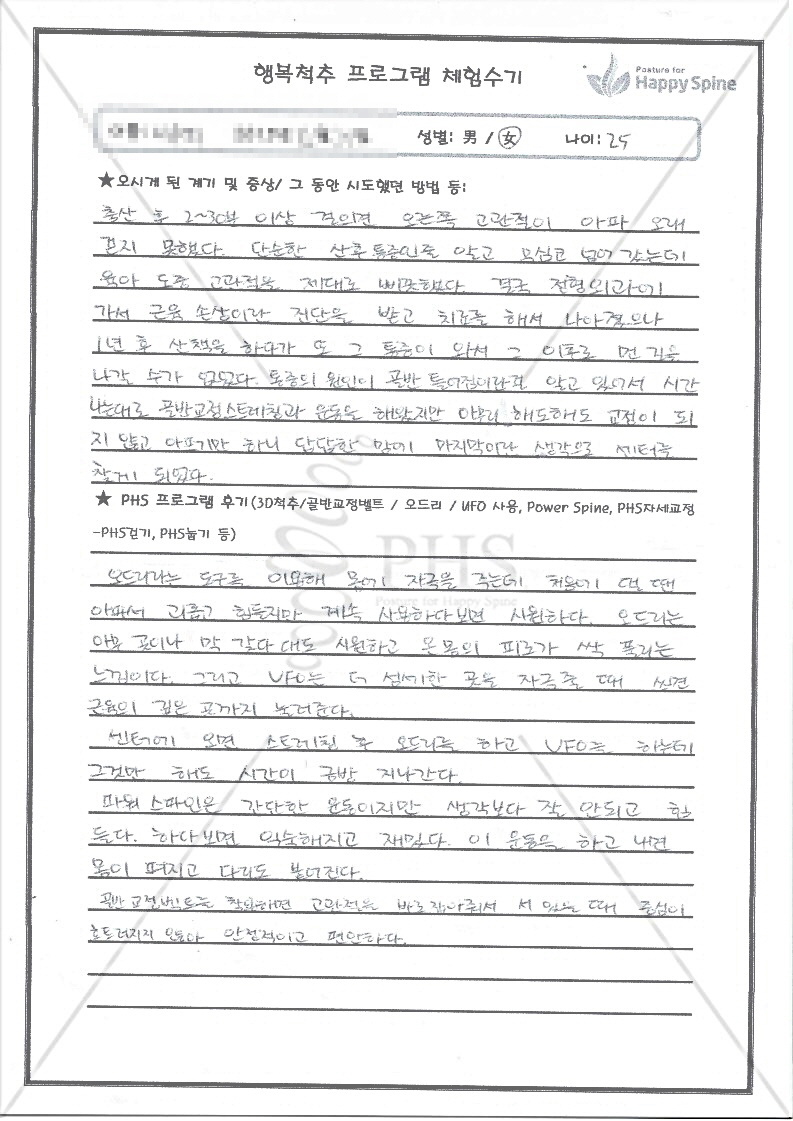 행복척추 프로그램 체험수기
Posture for
Happy Spine
성별: 男 / 女 나이: 25
★오시게 된 계기 및 증상/ 그 동안 시도했던 방법 등:
출산 후 2~30분 이상 걸으면 오른쪽 고관절이 아파 오래
걷지 못했다. 단순한 산후통증인줄 알고 넘어 갔는데
육아 도중 고관절을 제대로 삐끗했다. 결국 정형외과에
가서 근육 손상이라 진단을 받고 치료를 해서 나아졌으나
1년 후 산책을 하다가 또 그 통증이 와서 그 이후로 먼 길을
나갈 수가 없었다. 통증의 원인이 골반 틀어짐이란걸 알고 있어서 시간
나는대로 골반교정스트레칭과 운동을 해봤지만 아무리 해도해도 교정이 되
지 않고 아프기만 하니 답답한 맘에 마지막이라 생각으로 센터를
찾게 되었다.
★ PHS 프로그램 후기(3D척추/골반교정벨트 / 오드리 / UFO 사용, Power Spine, PHS자세교정
-PHS걷기, PHS눕기 등)
PHS
Posture for Happy Spine
오드리라는 도구를 이용해 몸에 자극을 주는데 처음에 할 땐
아파서 괴롭고 힘들지만 계속 사용하다보면 시원하다. 오드리는
아무 곳이나 막 갖다 대도 시원하고 온몸의 피로가 싹 풀리는
느낌이다. 그리고 UFO는 더 섬세한 곳을 자극줄 때 쓰면
근육의 깊은 곳까지 눌러준다.
센터에 오면 스트레칭 후 오드리를 하고 UFO를 하는데
그것만 해도 시간이 금방 지나간다.
파워 스파인은 간단한 운동이지만 생각보다 잘 안되고 힘
들다. 하다보면 익숙해지고 재밌다. 이 운동을 하고 나면
몸이 펴지고 다리도 붙어진다.
골반 교정벨트를 착용하면 고관절을 바로 잡아줘서 서 있을 때 중심이
흐트러지지 않아 안정적이고 편안하다.